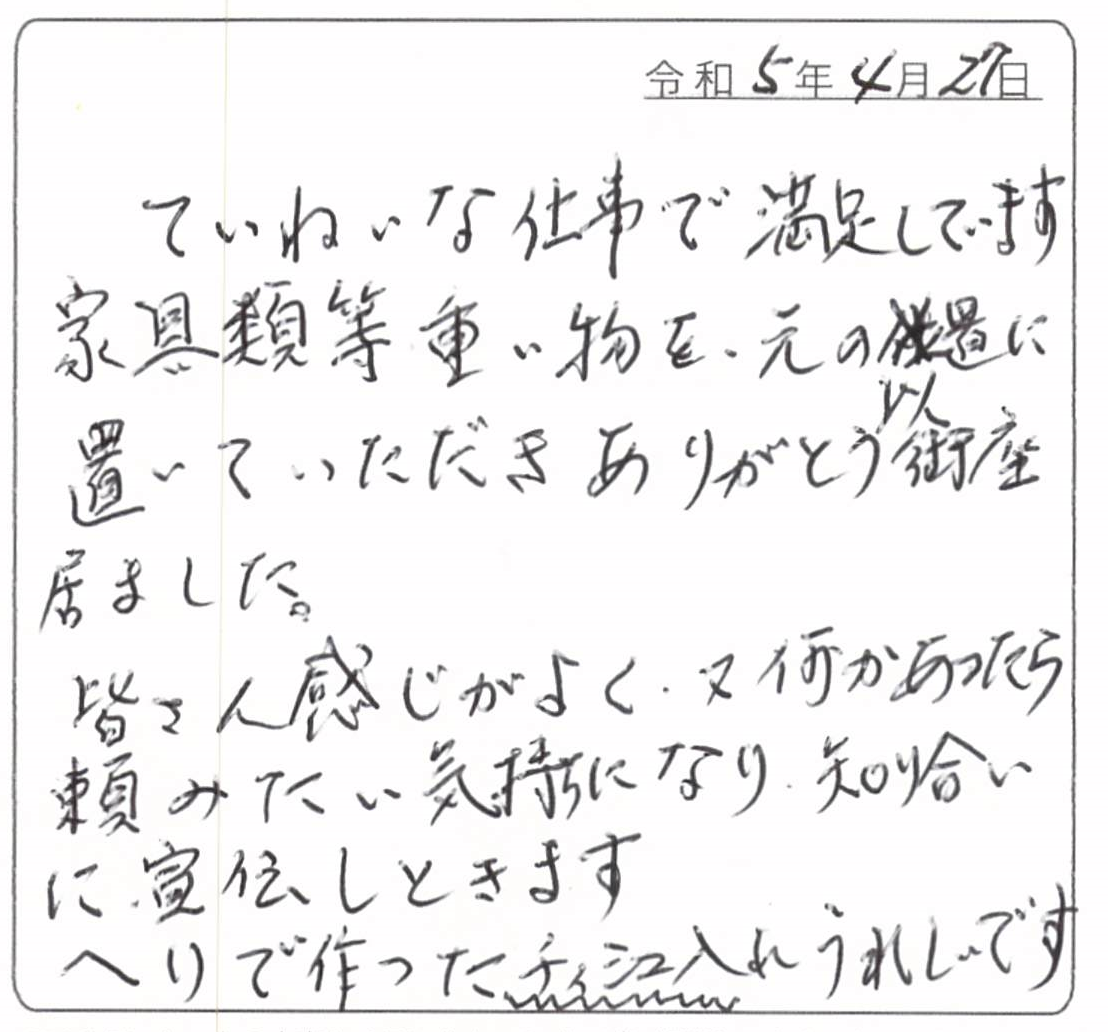 令和5年4月27日
ていねいな仕事で満足しています
家具類等重い物を、元の位置に
置いていただきありがとう御座
居ました。
皆さん感じがよく、又何かあったら
頼みたい気持ちになり、知り合い
に宣伝しときます
へりで作ったティシュ入れうれしいです